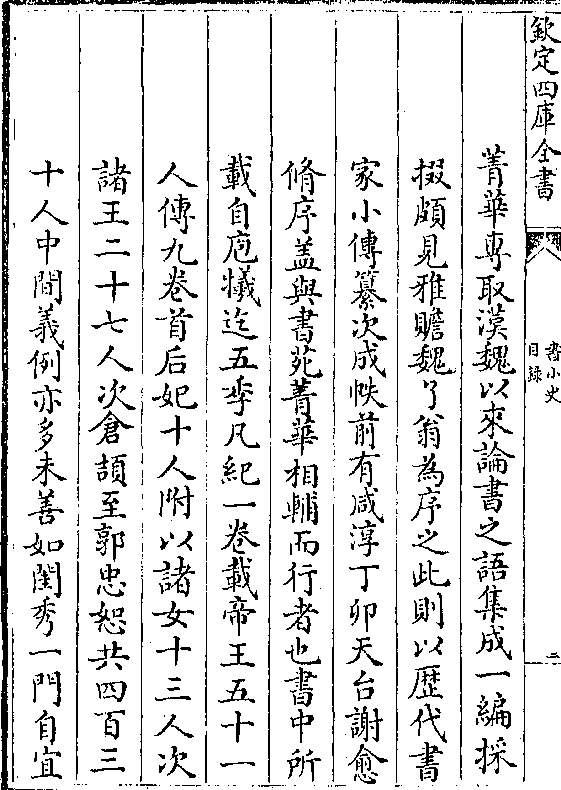 欽定四庫全書
書小史
目録
二
菁華專取漢魏以來論書之語集成一編採
掇頗見雅贍魏了翁為序之此則以歴代書
家小傳纂次成帙前有咸淳丁卯天台謝愈
脩序盖與書苑菁華相輔而行者也書中所
載自庖犧迄五季凡紀一卷載帝王五十一
人傳九卷首后妃十人附以諸女十三人次
諸王二十七人次倉頡至郭忠恕共四百三
十人中間義例亦多未善如閨秀一門自宜